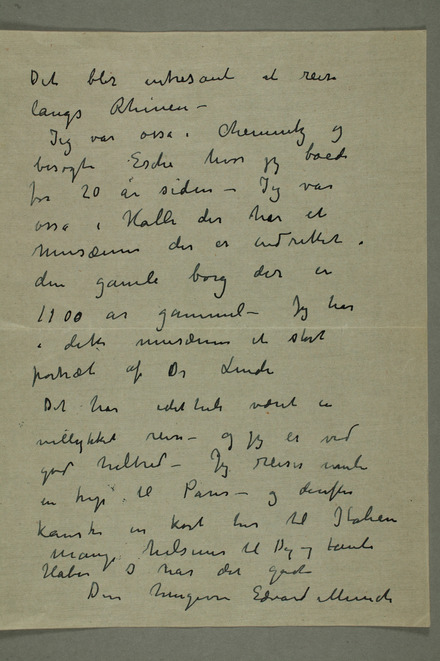 Det blir intresant at reise
langs Rhinen –
Jeg var ossa i Chemnitz og
besøgte Esche hvor jeg boede
for 20 år siden – Jeg var
ossa i Halle der har et
musæum der er indrettet i
den gamle borg der er
1100 år gammel – Jeg har
i dette musæum et stort
portræt af Dr Linde
Det har idethele været en
vellykket reise – og jeg er ved
god helbred – Jeg reiser
en tur til Paris – og derefter
kanske en kort tur til Italien
Mange hilsener til Dig og tante
Haber I har det godt
Din hengivne Edvard Munch